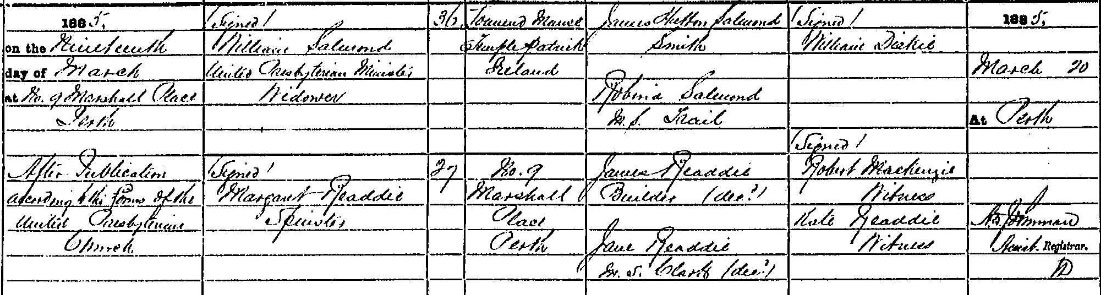 1885.
on the Nineteenth
day of March
at No. 9 Marshall Place
Perth
After Publication
according to the Forms of the
United Presbyterian
Church
(Signed)
William Salmond
United Presbyterian Minister
Widower
(Signed)
Margaret Readdie
Spinster
36
27
Townend Manse
Temple Patrick
Ireland
No. 9
Marshall
Place
Perth
James Hutton Salmond
Smith
Robina Salmond
M.S. Trail
James Readdie
Builder (dec?)
Jane Readdie
M.S. Clark (dec?)
(Signed)
William Dickie
(Signed)
Robert Mackenzie
Witness
Kate Readdie
Witness
1885.
March 20
At Perth
Assist. Registrar.